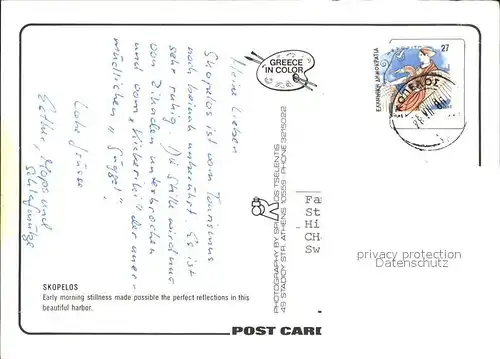 Meine Lieben
Skopelos ist vom Tourismus
noch beinah unberührt. Es ist
sehr ruhig. Die Stille wird nur
von Zikaden unterbrochen
und vom „Kickeriki" der uner-
müdlichen „Güggel".
Liebe Grüsse
Mops und
Schlafmütze
GREECE
IN COLOR
27
ΕΛΛΗΝΙΚΗ ΔΗΜΟΚΡΑΤΙΑ
ΣΚΟΠΕΛΟΣ
PHOTOGRAPHY BY SPYROS TSELENTIS
49 STADIOY STR. ATHENS 10559 - PHONE 3215022
Fa
St
Hi
CH
Sw
privacy protection
Datenschutz
SKOPELOS
Early morning stillness made possible the perfect reflections in this
beautiful harbor.
POST CARD